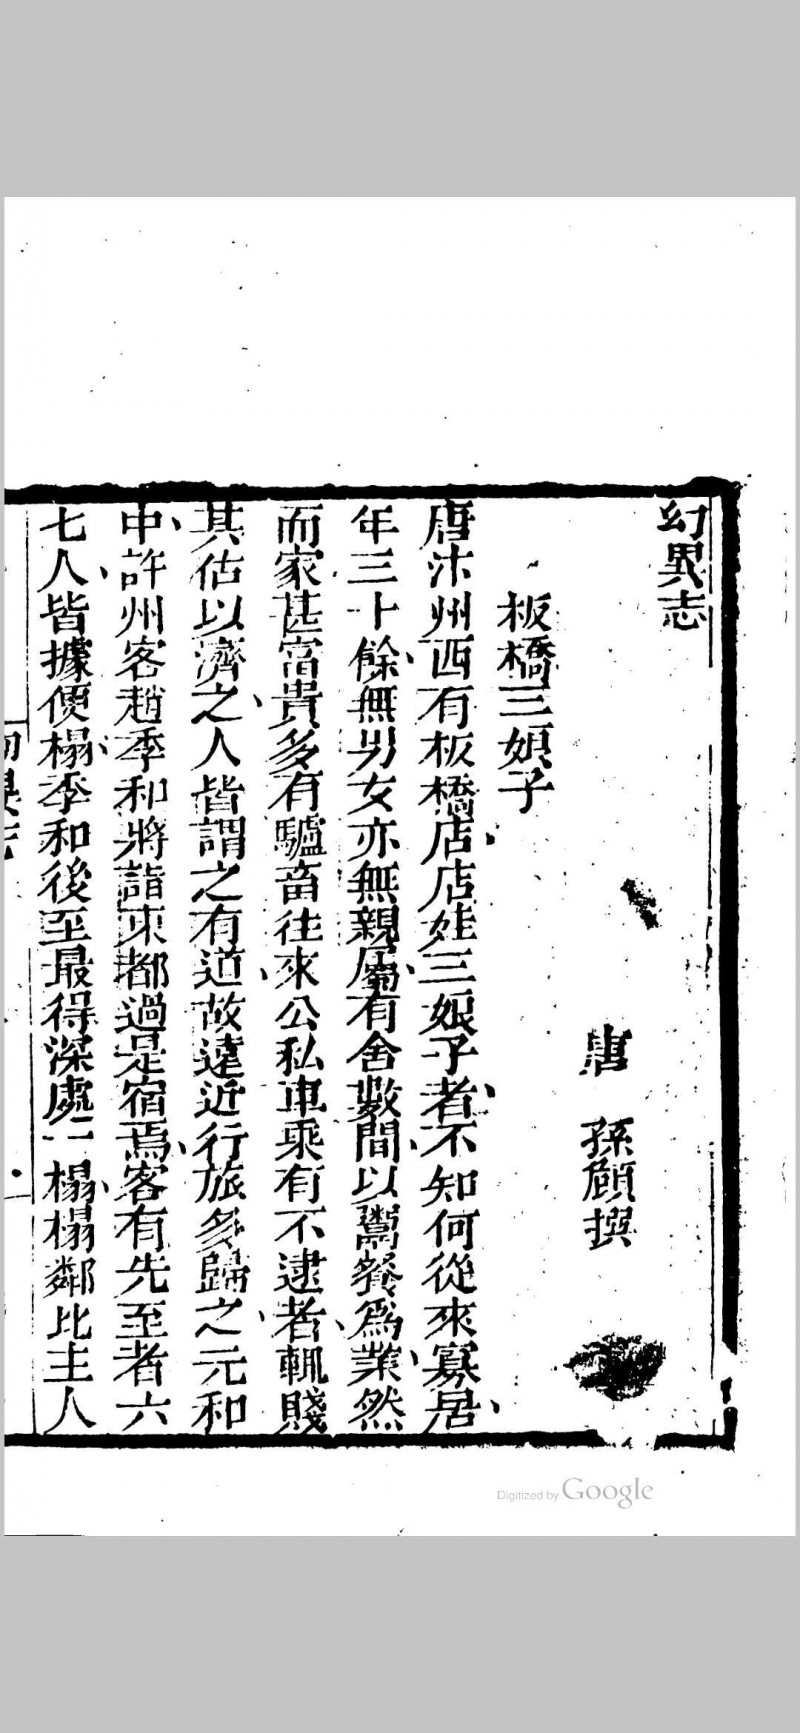 幻異志
唐　孫頠撰
板橋三娘子
唐汴州西有板橋店店娃三娘子者不知何從來寡居
年三十餘無男女亦無親屬有舍數間以鬻餐為業然
而家甚富貴多有驢畜往來公私車乘有不逮者輒賤
其估以濟之人皆謂之有道故遠近行旅多歸之元和
中許州客趙季和將詣東都過是宿焉客有先至者六
七人皆據便榻季和後至最得深處一榻榻鄰比主人
幻異志
Digitized by Google